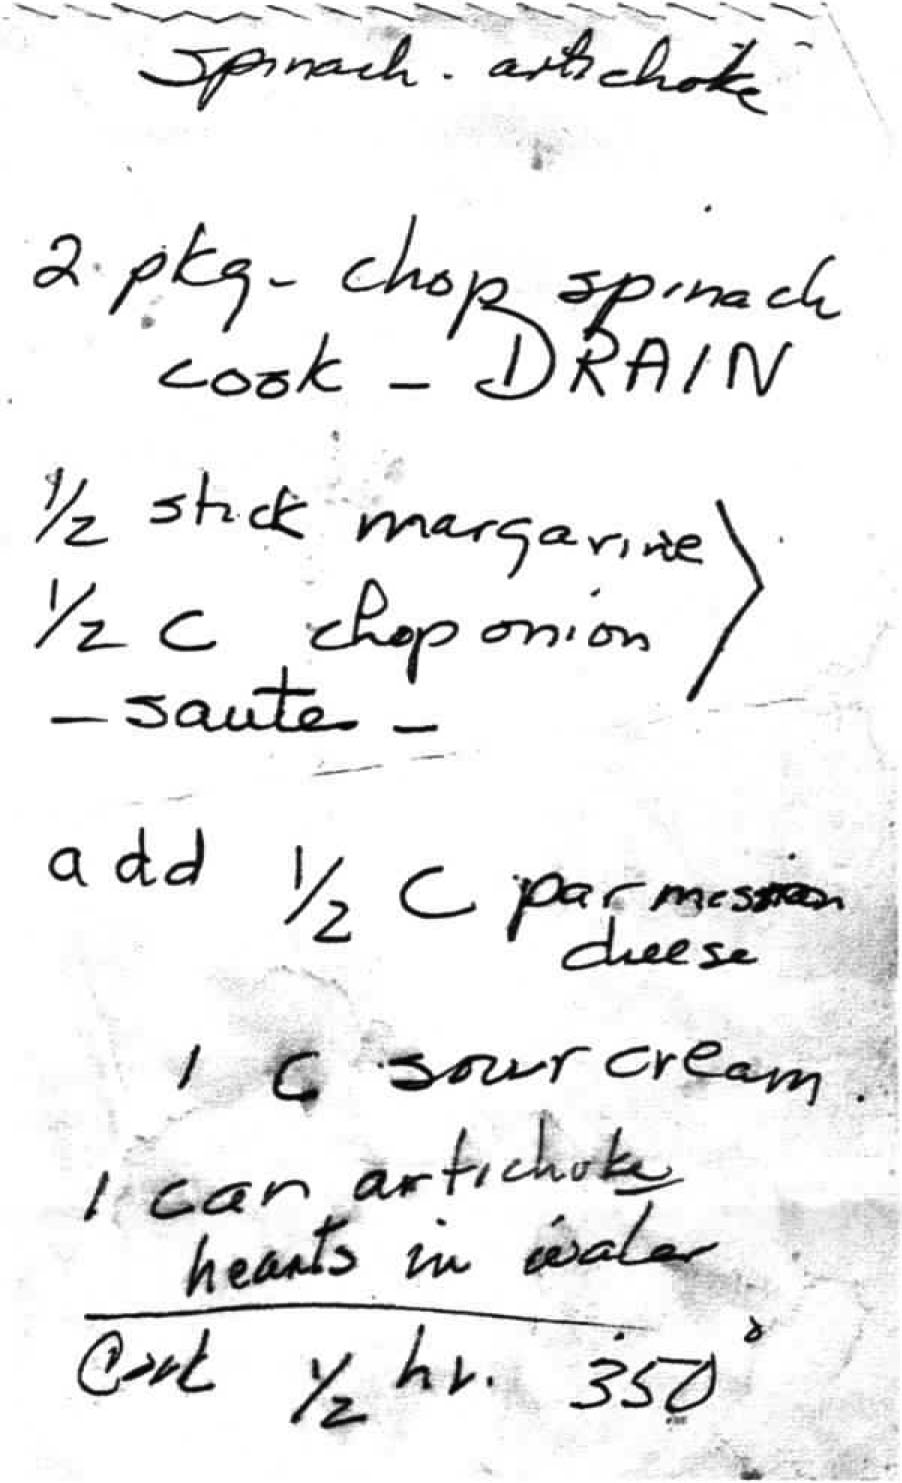 Spinach - artichoke
2 pkg - chop spinach
cook - DRAIN
1/2 stick margarine
1/2 C chop onion
- saute -
add 1/2 C parmesan
cheese
1 C sour cream.
1 can artichoke
hearts in water
Cook 1/2 hr. 350°